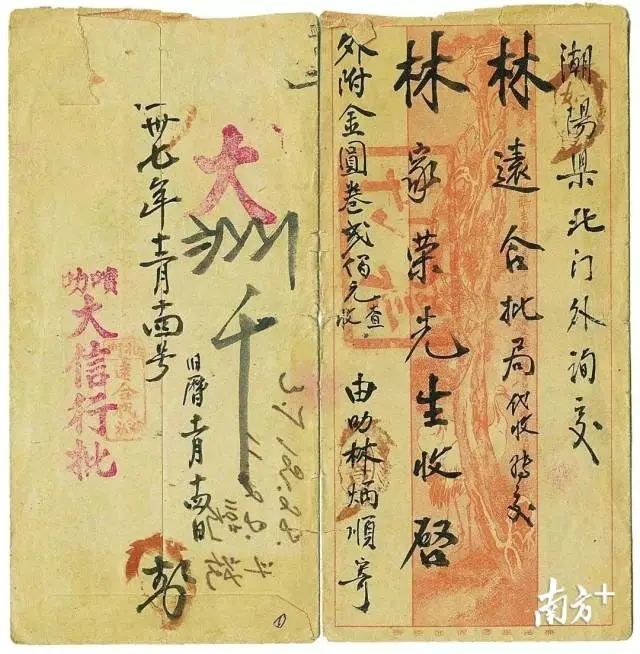 潮陽県北门外詢交
林遠合批局代收转交
林家荣先生收啓
外附金圓卷弍佰元查收
由叻林炳順寄
大
千
3.7 12.28.
卅七年十二月廿四号
旧曆十一月廿四日
叻
大信行批
南方+